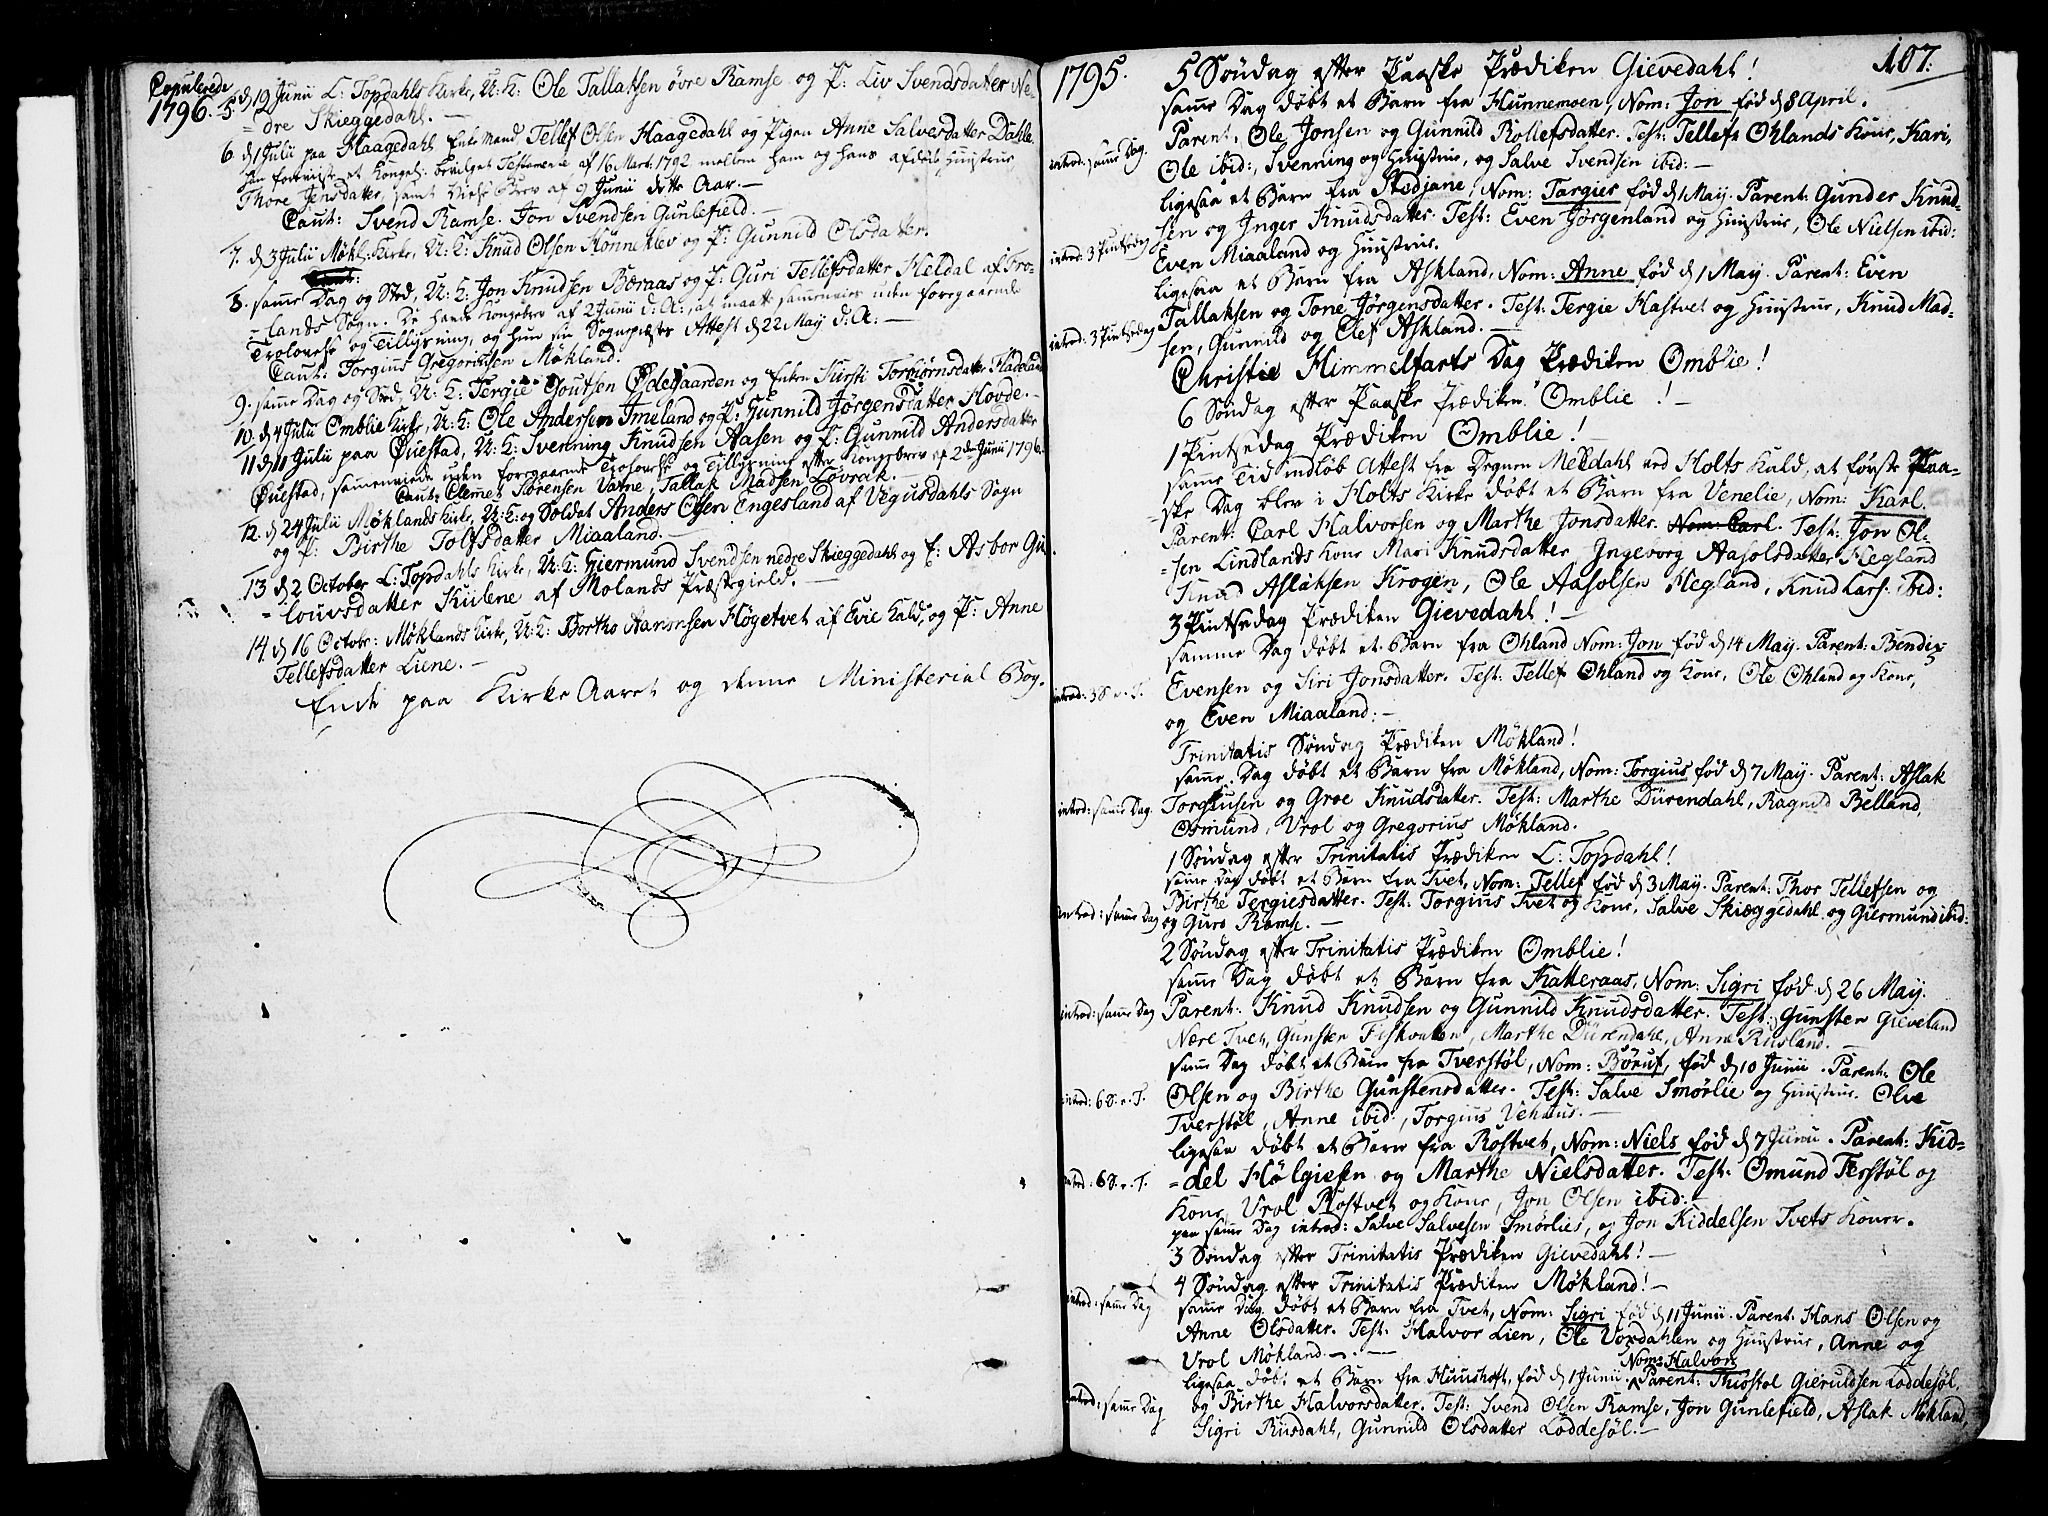 Copulerede
1796. 5. d 19 Junii L: Topdahls Kirke, U: K: Ole Tallaksen øvre Ramse og P: Liv Svendsdatter Ne-
=dre Skieggedahl. —
6. d 1 Julii paa Haagedahl Enke Mand Tellef Olsen Haagedahl og Pigen Anne Salvesdatter Dahle.
han foreviist et Kongel: bevilget Testamente af 16 Mart: 1792 mellem ham og hans afdøde Huustrue
Thore Jensdatter, samt Brev af 9 Junii dette Aar. —
Caut: Svend Ramse. Jon Svendsen Gunlefield. —
7. d 3 Julii Møkl: Kirke, U: K: Knud Olsen Hønneklev og P: Gunnild Olsdatter.
8. samme Dag og Sted, U: K: Jon Knudsen Beraas og P: Guri Tellefsdatter Heldal af Fro-
=lands Sogn. De havde Kongebrev af 2 Junii d: A:, at maatte sammenvies uden foregaaende
Trolovelse og Tillysning, og hun sin Sognepræstes Attest d 22 May d: A: —
Caut: Torgius Gregoriusen Møkland.
9. samme Dag og Sted, U: K: Tergie Goutsen Ødegaarden og Enken Kirsti Torbiørnsdatter Fladeland
10. d 4 Julii Omblie Kirke, U: K: Ole Andersen Imeland og P: Gunnild Jørgensdatter Hovde. —
11 d 11 Julii paa Øuestad, U: K: Svenning Knudsen Aasen og P: Gunnild Andersdatter
Øuestad, sammenviede uden foregaaende Trolovelse og Tillysning efter Kongebrev af 2den Junii 1796.
Caut: Clemet Sørensen Vatne, Tallak Madsen Løvrak. —
12. d 24 Julii Møklands Kirke, U: K: og Soldat Anders Olsen Engesland af Vegusdahls Sogn
og P: Birthe Tolfsdatter Miaaland. —
13 d 2 October L: Topdahls Kirke, U: K: Giermund Svendsen nedre Skieggedahl og P: Asbor Gu-
=louvsdatter Kiilene af Molands Præstegield. —
14. d 16 October: Møklands Kirke, U: K: Bertho Aanensen Høgetvet af Evie Kald, og P: Anne
Tellefsdatter Liene. —
Ende paa Kirke Aaret og denne Ministerial Bog.
107.
1795. 5 Søndag efter Paaske Prædiken Gievedahl!
samme Dag døbt et Barn fra Hunnemoen, Nom: Jon født d 8 April.
introd: samme Dag. Parent, Ole Jonsen og Gunnild Rollefsdatter. Test: Tellef Ohlands Kone, Kari,
Ole ibid:, Svenning og Huustrue, og Salve Svendsen ibid: —
ligesaa et Barn fra Stedjane, Nom: Targier fød d 1 May. Parent: Gunder Knud-
introd: 3 Pintsedag sen og Inger Knudsdatter. Test: Even Jørgenland og Huustrue, Ole Nielsen ibid:
Even Miaaland og Huustrue.
ligesaa et Barn fra Askland, Nom: Anne fød d 1 May. Parent: Even
introd: 3 Pintsedag Tallaksen og Tone Jørgensdatter. Test: Tergie Hastvet og Huustrue, Knud Mad-
sen, Gunnild og Elef Askland. —
Christie Himmelfarts Dag Prædiken Omblie!
6 Søndag efter Paaske Prædiken Omblie! —
1 Pintsedag Prædiken Omblie!
samme Tid indløb Attest fra Degnen Meldahl ved Holts Kald, at første Paa-
=ske Dag blev i Holts Kirke døbt et Barn fra Venelie, Nom: Karl.
Parent: Carl Halvorsen og Marthe Jonsdatter. Nom: Carl. Test: Jon Ol-
=sen Lindlands Kone Mari Knudsdatter, Ingeborg Aasolsdatter Hegland
Knud Aslaksen Krogen, Ole Aasolsen Hegland, Knud Lars: ibid:
3 Pintsedag Prædiken Gievedahl! —
samme Dag døbt et Barn fra Ohland Nom: Jon fød d 14 May. Parent: Bendix
introd: 3 S. e. T. Evensen og Siri Jonsdatter. Test: Tellef Ohland og Kone, Ole Ohland og Kone,
og Even Miaaland: —
Trinitatis Søndag Prædiken Møkland!
samme Dag døbt et Barn fra Møkland, Nom: Torgius fød d 7 May. Parent: Aslak
introd: samme Dag. Torgiusen og Groe Knudsdatter. Test: Marthe Dürendahl, Ragnild Belland,
Osmund, Vrol og Gregorius Møkland.
1 Søndag efter Trinitatis Prædiken L: Topdahl!
samme Dag døbt et Barn fra Tvet, Nom: Tellef fød d 3 May. Parent: Thor Tellefsen og
introd: samme Dag Birthe Tergiesdatter. Test: Torgius Tvet og Kone, Salve Skiæggedahl og Giermund ibid:
og Guro Ramse. —
2 Søndag efter Trinitatis Prædiken Omblie!
samme Dag døbt et Barn fra Katteraas, Nom: Sigri fød d 26 May.
introd: samme Dag Parent: Knud Knudsen og Gunnild Knudsdatter. Test: Gunsten Gieveland
Nære Tvet, Gunsten Fiskvatten, Marthe Dürendahl, Anne Risland. —
samme Dag døbt et Barn fra Tverstøl, Nom: Børuf, fød d 10 Junii. Parent: Ole
introd: 6 S. e. T. Olsen og Birthe Gunstensdatter. Test: Salve Smørlie og Huustrue. Olve
Tverstøl, Anne ibid:, Torgius Vehuus. —
ligesaa døbt et Barn fra Rostvet, Nom: Niels fød d 7 Junii. Parent: Kid-
introd: 6 S. e. T. =del Hølgiesen og Marthe Nielsdatter. Test: Omund Tverstøl og
Kone, Vrol Rostvet og Kone, Jon Olsen ibid: —
paa samme Dag introd: Salve Salvesen Smørlies, og Jon Kiddelsen Tvets Koner.
3 Søndag efter Trinitatis Prædiken Gievedahl! —
4 Søndag efter Trinitatis Prædiken Møkland! —
introd: samme Dag samme Dag døbt et Barn fra Tvet, Nom: Sigri fød d 11 Junii. Parent: Hans Olsen og
Anne Olsdatter. Test: Halvor Lien, Ole Vordahlen og Huustrue, Anne og
Vrol Møkland. —
Nom: Halvor
ligesaa døbt et Barn fra Huusheft, fød d 1 Junii. Parent: Thiostol Gieruldsen Løddesøl,
introd: samme Dag og Birthe Halvorsdatter. Test: Svend Olsen Ramse, Jon Gunlefield, Aslak Møkland,
Sigri Risdahl, Gunnild Olsdatter Løddesøl. —